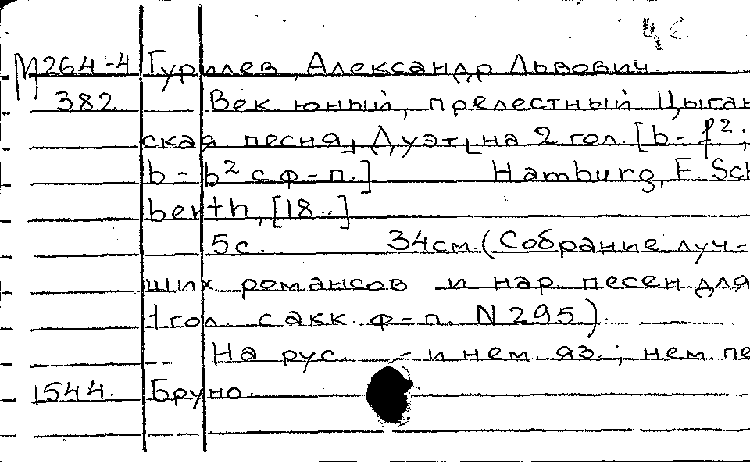 М264-4 Гурилев, Александр Львович.
382 Век юный, прелестный Цыган
ская песня, Дуэт, на 2 гол. [b-f²;
b-b² с ф-п.] Hamburg, F. Sch
berth, [18..]
5с. 34см. (Собрание луч-
ших романсов и нар. песен для
1 гол. с акк. ф-п. N 295).
На рус. и нем. яз.; нем. пе
1544. Бруно